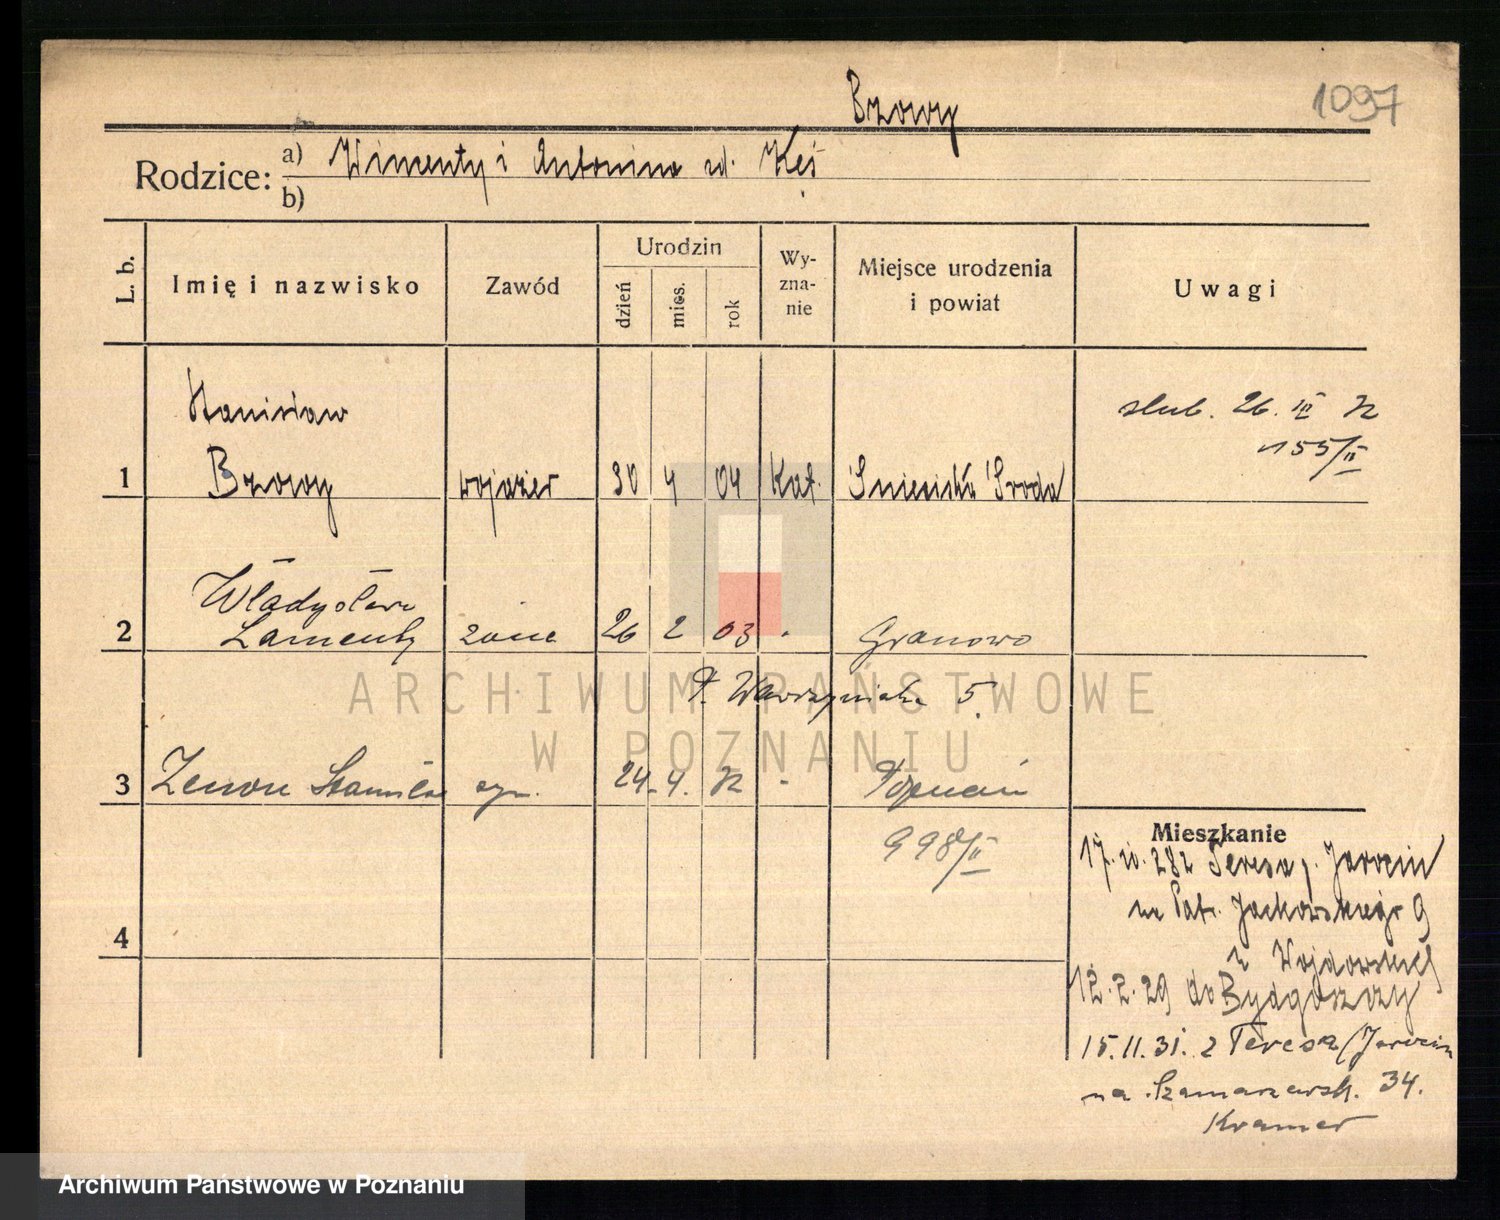 Brzowy
1097
Rodzice: a) Wincenty i Antonina zd. Kęś
b)
L. b.
Imię i nazwisko
Zawód
Urodzin
dzień
mies.
rok
Wy-
zna-
nie
Miejsce urodzenia
i powiat
Uwagi
Stanisław
Brzowy
1
wojażer
30
4
04
Kat.
Środa
ślub. 26. III 32
155/II
Władysława
2
żona
26
2
03
-
Granowo
P. Wawrzyniaka 5.
3
Zenon Stanisław
syn.
24.
4.
32
-
Poznań
998/II
4
Mieszkanie
Teresa p. Jarocin
na Patr. Jackowskiego 9
12.2.29 do Bydgoszczy
15.11.31. z Teresa / Jarocin
na Szamarzewsk. 34.
Kramer
ARCHIWUM PAŃSTWOWE
W POZNANIU
Archiwum Państwowe w Poznaniu